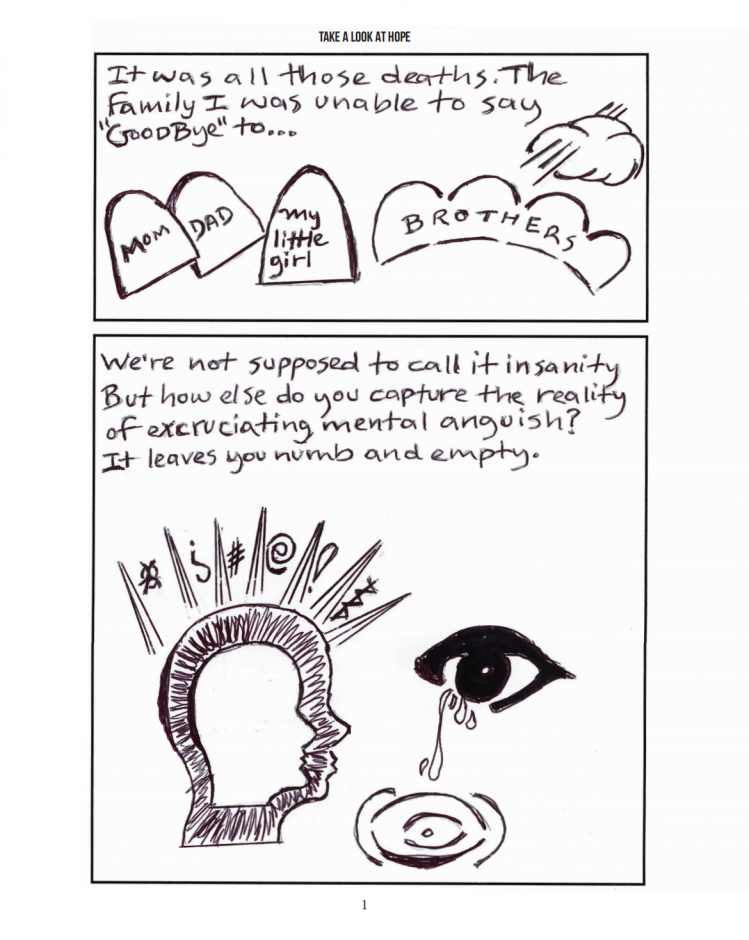 TAKE A LOOK AT HOPE
It was all those deaths. The
family I was unable to say
"GOODBye" to...
MOM
DAD
my
little
girl
BROTHERS
We're not supposed to call it insanity
But how else do you capture the reality
of excruciating mental anguish?
It leaves you numb and empty.
1